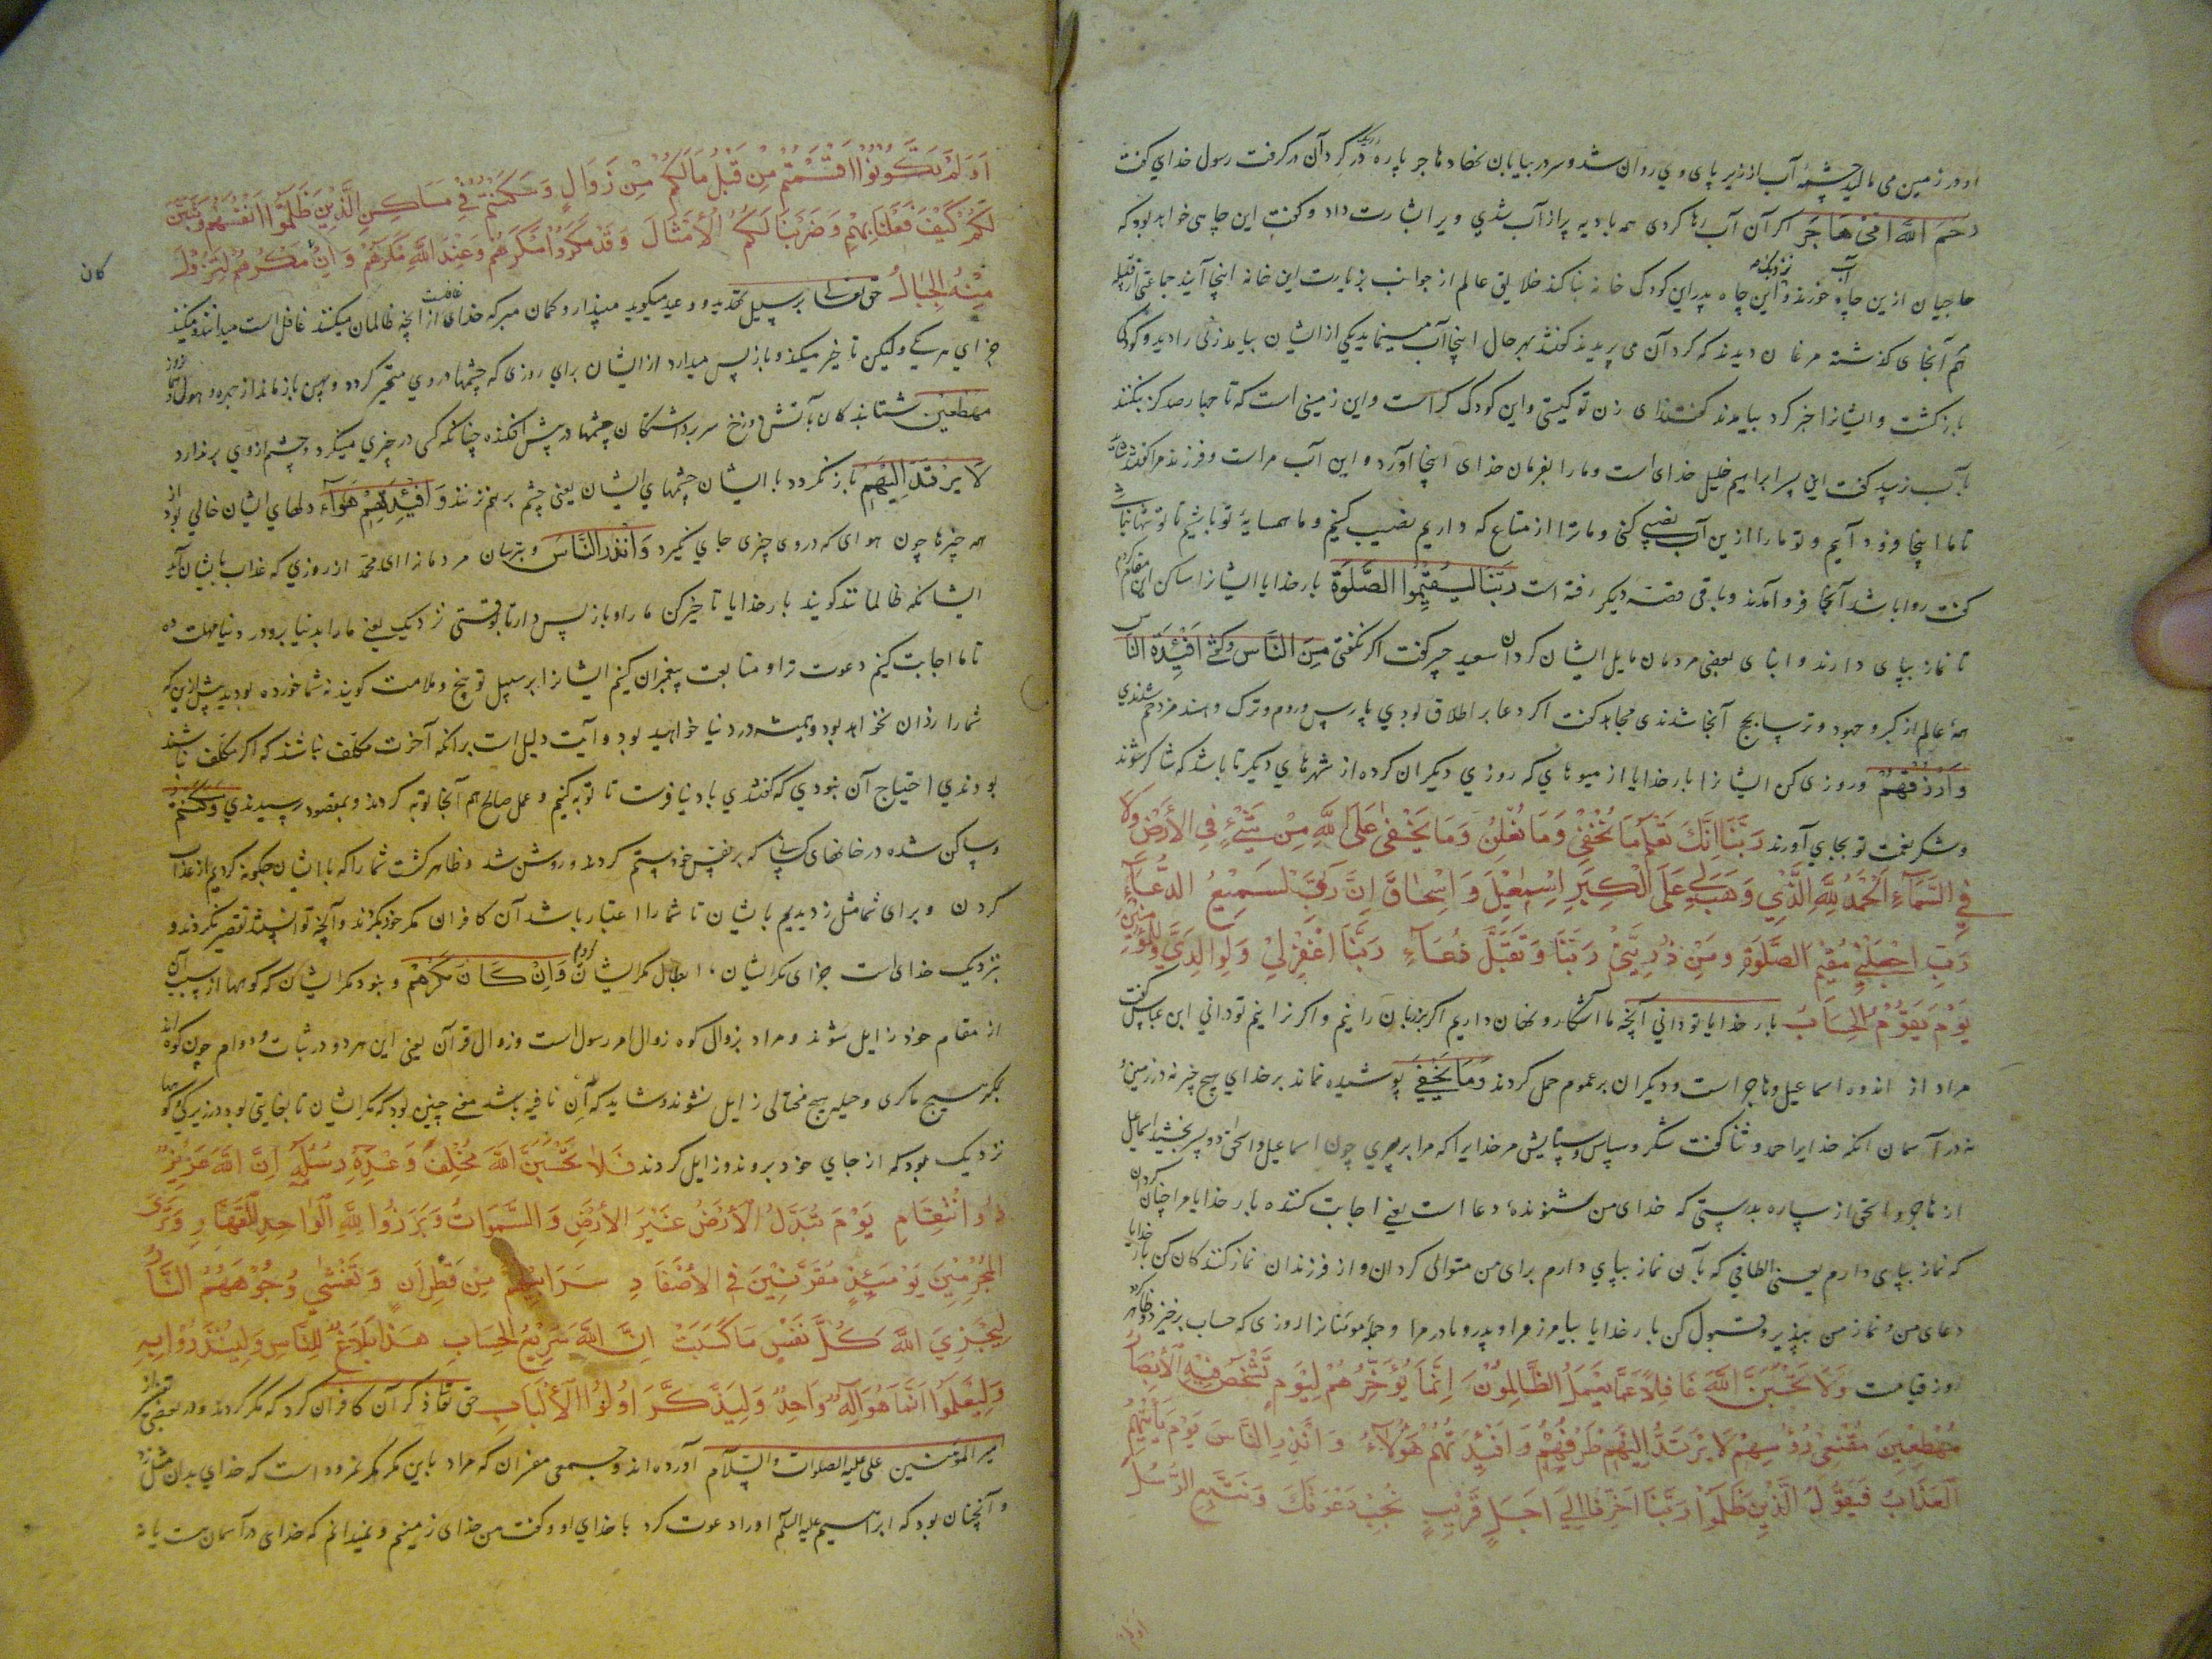 او در زمین می مالید چشمهٔ آب از زیر پای وی روان شد و سر در بیابان نهاد هاجر پاره در کرد آن در گرفت رسول خدای گفت
رحم الله امی هاجر اگر آن آب رها کردی همه بادیه پر از آب شدی ویرا بشارت داد و گفت این چاهی خواهد بود که
حاجیان ازین چاه آب خورند و این چاه پدر این کودک خانه بنا کند خلایق عالم از جوانب بزیارت این خانه اینجا آیند جماعتی از قبیله
آنجای گذشته مرغان دیدند که گرد آن می پریدند گفتند بهر حال اینجا آب مینماید یکی از ایشان بیامد زنی را دید و کودکی
باز گشت و ایشانرا خبر کرد بیامدند گفتند ای زن تو کیستی و این کودک کراست و این زمینی است که تا
گفت این پسر ابراهیم خلیل خدای است و ما را بفرمان خدای اینجا آورد و این آب مراست و فرزند مرا گفتند
تا ما اینجا فرود آییم و تو ما را ازین آب نصیبی کنی و ما ترا از متاع که داریم نصیب کنیم و ما همسایهٔ تو باشیم تا تو تنها نباشی
گفت روا باشد آنجا فرو آمدند و باقی قصه دیگر رفته است رَبَّنَا لِيُقِيمُوا الصَّلوةَ بار خدایا ایشانرا ساکن این مقام کردم
تا نماز بپای دارند و بعضی مردمان مایل ایشان گردان سعید جبیر گفت اگر نگفتی مِنَ النَّاسِ و گفتی اَفْئِدَةَ النَّاسِ
همهٔ عالم از گبر و جهود و ترسا بحج آنجا شدندی مجاهد گفت اگر دعا بر اطلاق بودی پارس و روم و ترک و هند مزدحم شدندی
وَارْزُقْهُمْ و روزی کن ایشانرا بار خدایا از میوهای که روزی دیگران کرده از شهرهای دیگر تا باشد که شاکر شوند
و شکر نعمت تو بجای آورند رَبَّنَا اِنَّكَ تَعْلَمُ مَا نُخْفِي وَمَا نُعْلِنُ وَمَا يَخْفى عَلَى اللَّهِ مِنْ شَيْءٍ فِي الْاَرْضِ وَلَا
فِي السَّمَاءِ اَلْحَمْدُ لِلَّهِ الَّذِي وَهَبَ لِي عَلَى الْكِبَرِ اِسْمعِيلَ وَاِسْحَاقَ اِنَّ رَبِّي لَسَمِيعُ الدُّعَاءِ
رَبِّ اجْعَلْنِي مُقِيمَ الصَّلوةِ وَمِنْ ذُرِّيَّتِي رَبَّنَا وَتَقَبَّلْ دُعَاءِ رَبَّنَا اغْفِرْ لِي وَلِوَالِدَيَّ وَلِلْمُؤْمِنِينَ
يَوْمَ يَقُومُ الْحِسَابُ بار خدایا تو دانی آنچه ما آشکارا و نهان داریم اگر بزبان رانیم و اگر نرانیم تو دانی ابن عباس گفت
مراد از اندوه اسماعیل و هاجر است و دیگران بر عموم حمل کردند وَمَا يَخْفى پوشیده نماند بر خدای هیچ چیز نه در زمین و
نه در آسمان آنکه خدایرا حمد و ثنا گفت شکر و سپاس و ستایش مر خدایرا که مرا بر پیری چون اسماعیل و اسحق دو پسر بخشید اسماعیل
از هاجر و اسحق از ساره بدرستی که خدای من شنوندهٔ دعا است یعنی اجابت کننده بار خدایا مرا چنان گردان
که نماز بپای دارم یعنی الطافی که بآن نماز بپای دارم برای من متوالی گردان و از فرزندان نماز کنندگان کن بار خدایا
دعای من و نماز من بپذیر و قبول کن بار خدایا بیامرز مرا و پدر و مادر مرا و جمله مومنانرا روزی که حساب برخیزد و ظاهر گردد
روز قیامت وَلَا تَحْسَبَنَّ اللَّهَ غَافِلًا عَمَّا يَعْمَلُ الظَّالِمُونَ اِنَّمَا يُؤَخِّرُهُمْ لِيَوْمٍ تَشْخَصُ فِيهِ الْاَبْصَارُ
مُهْطِعِينَ مُقْنِعِي رُؤُسِهِمْ لَا يَرْتَدُّ اِلَيْهِمْ طَرْفُهُمْ وَاَفْئِدَتُهُمْ هَوَاءٌ وَاَنْذِرِ النَّاسَ يَوْمَ يَأْتِيهِمُ
الْعَذَابُ فَيَقُولُ الَّذِينَ ظَلَمُوا رَبَّنَا اَخِّرْنَا اِلَى اَجَلٍ قَرِيبٍ نُجِبْ دَعْوَتَكَ وَنَتَّبِعِ الرُّسُلَ
اَوَلَمْ تَكُونُوا اَقْسَمْتُمْ مِنْ قَبْلُ مَا لَكُمْ مِنْ زَوَالٍ وَسَكَنْتُمْ فِي مَسَاكِنِ الَّذِينَ ظَلَمُوا اَنْفُسَهُمْ وَتَبَيَّنَ
لَكُمْ كَيْفَ فَعَلْنَا بِهِمْ وَضَرَبْنَا لَكُمُ الْاَمْثَالَ وَقَدْ مَكَرُوا مَكْرَهُمْ وَعِنْدَ اللَّهِ مَكْرُهُمْ وَاِنْ كان مَكْرُهُمْ لِتَزُولَ
مِنْهُ الْجِبَالُ حق تعالی بر سبیل تهدید و وعید میگوید مپندار و گمان مبر که خدای از آنچه ظالمان میکنند غافل است میداند و میکند
جزای هر یکی ولیکن تاخیر میکند و باز پس میدارد از ایشان برای روزی که چشمها در وی متحیر گردد و پهن باز ماند از
مهطعین شتابندگان بآتش دوزخ سر برداشتگان چشمها در پیش افکنده چنانکه کسی در چیزی مینگرد و چشم از وی بر ندارد
لَا يَرْتَدُّ اِلَيْهِمْ باز نگردد با ایشان چشمهای ایشان یعنی چشم بر هم نزنند وَاَفْئِدَتُهُمْ هَوَاءٌ دلهای ایشان خالی بود از
همه چیزها چون هوای که در وی چیزی جای نگیرد وَاَنْذِرِ النَّاسَ و بترسان مردمانرا ای محمد از روزی که عذاب بایشان آید
ایشانکه ظالمانند گویند بار خدایا تاخیر کن ما را و باز پس دار تا بوقتی نزدیک یعنی ما را بدنیا بر و در دنیا مهلت ده
تا ما اجابت کنیم دعوت ترا و متابعت پیغمبران کنیم ایشانرا بر سبیل توبیخ و ملامت گویند نه شما خورده بودید پیش ازین که
شما را زوال نخواهد بود و همیشه در دنیا خواهید بود و آیت دلیل است بر آنکه آخرت مکلف نباشند که اگر مکلف باشند
بودندی احتیاج آن نبودی که گفتندی بار دنیا فرست تا توبه کنیم و عمل صالح هم آنجا توبه کردند و بمقصود رسیدندی وَسَكَنْتُمْ
و ساکن شده در خانهای کسانی که بر نفس خود ستم کردند و روشن شد و ظاهر گشت شما را که با ایشان چگونه کردیم از عذاب
کردن و برای شما مثل زدیم بایشان تا شما را اعتبار باشد آن کافران مکر خود بکردند و آنچه توانستند تقصیر نکردند و
بنزدیک خدای است جزای مکر ایشان ابطال مکر ایشان وَاِنْ كَانَ مَكْرُهُمْ و نبود مکر ایشان که کوهها از سبب آن
از مقام خود زایل شوند و مراد بزوال کوه زوال امر رسول است و زوال قرآن یعنی این هر دو در ثبات و دوام چون کوه اند
بمکر هیچ ماکری و حیله هیچ محتالی زایل نشوند و شاید که اِن نافیه باشد معنی چنین بود که مکر ایشان تا بغایتی بود
نزدیک بود که از جای خود بروند و زایل گردند فَلَا تَحْسَبَنَّ اللَّهَ مُخْلِفَ وَعْدِهِ رُسُلَهُ اِنَّ اللَّهَ عَزِيزٌ
ذُو انْتِقَامٍ يَوْمَ تُبَدَّلُ الْاَرْضُ غَيْرَ الْاَرْضِ وَالسَّموَاتُ وَبَرَزُوا لِلَّهِ الْوَاحِدِ الْقَهَّارِ وَتَرَى
الْمُجْرِمِينَ يَوْمَئِذٍ مُقَرَّنِينَ فِي الْاَصْفَادِ سَرَابِيلُهُمْ مِنْ قَطِرَانٍ وَتَغْشى وُجُوهَهُمُ النَّارُ
لِيَجْزِيَ اللَّهُ كُلَّ نَفْسٍ مَا كَسَبَتْ اِنَّ اللَّهَ سَرِيعُ الْحِسَابِ هذَا بَلَاغٌ لِلنَّاسِ وَلِيُنْذَرُوا بِهِ
وَلِيَعْلَمُوا اَنَّمَا هُوَ اِلهٌ وَاحِدٌ وَلِيَذَّكَّرَ اُولُوا الْاَلْبَابِ حق تعالی ذکر آن کافران کرد که مکر کردند و در بعضی تفسیر
امیر المومنین علی علیه الصلوات والسلام آورده اند و جمعی مفسران که مراد باین مکر مکر نمرود است که خدای بدان مثل زد
و آنچنان بود که ابراهیم علیه السلام او را دعوت کرد با خدای او و گفت من خدای زمینم و نمیدانم که خدای در آسمان هست یا نه